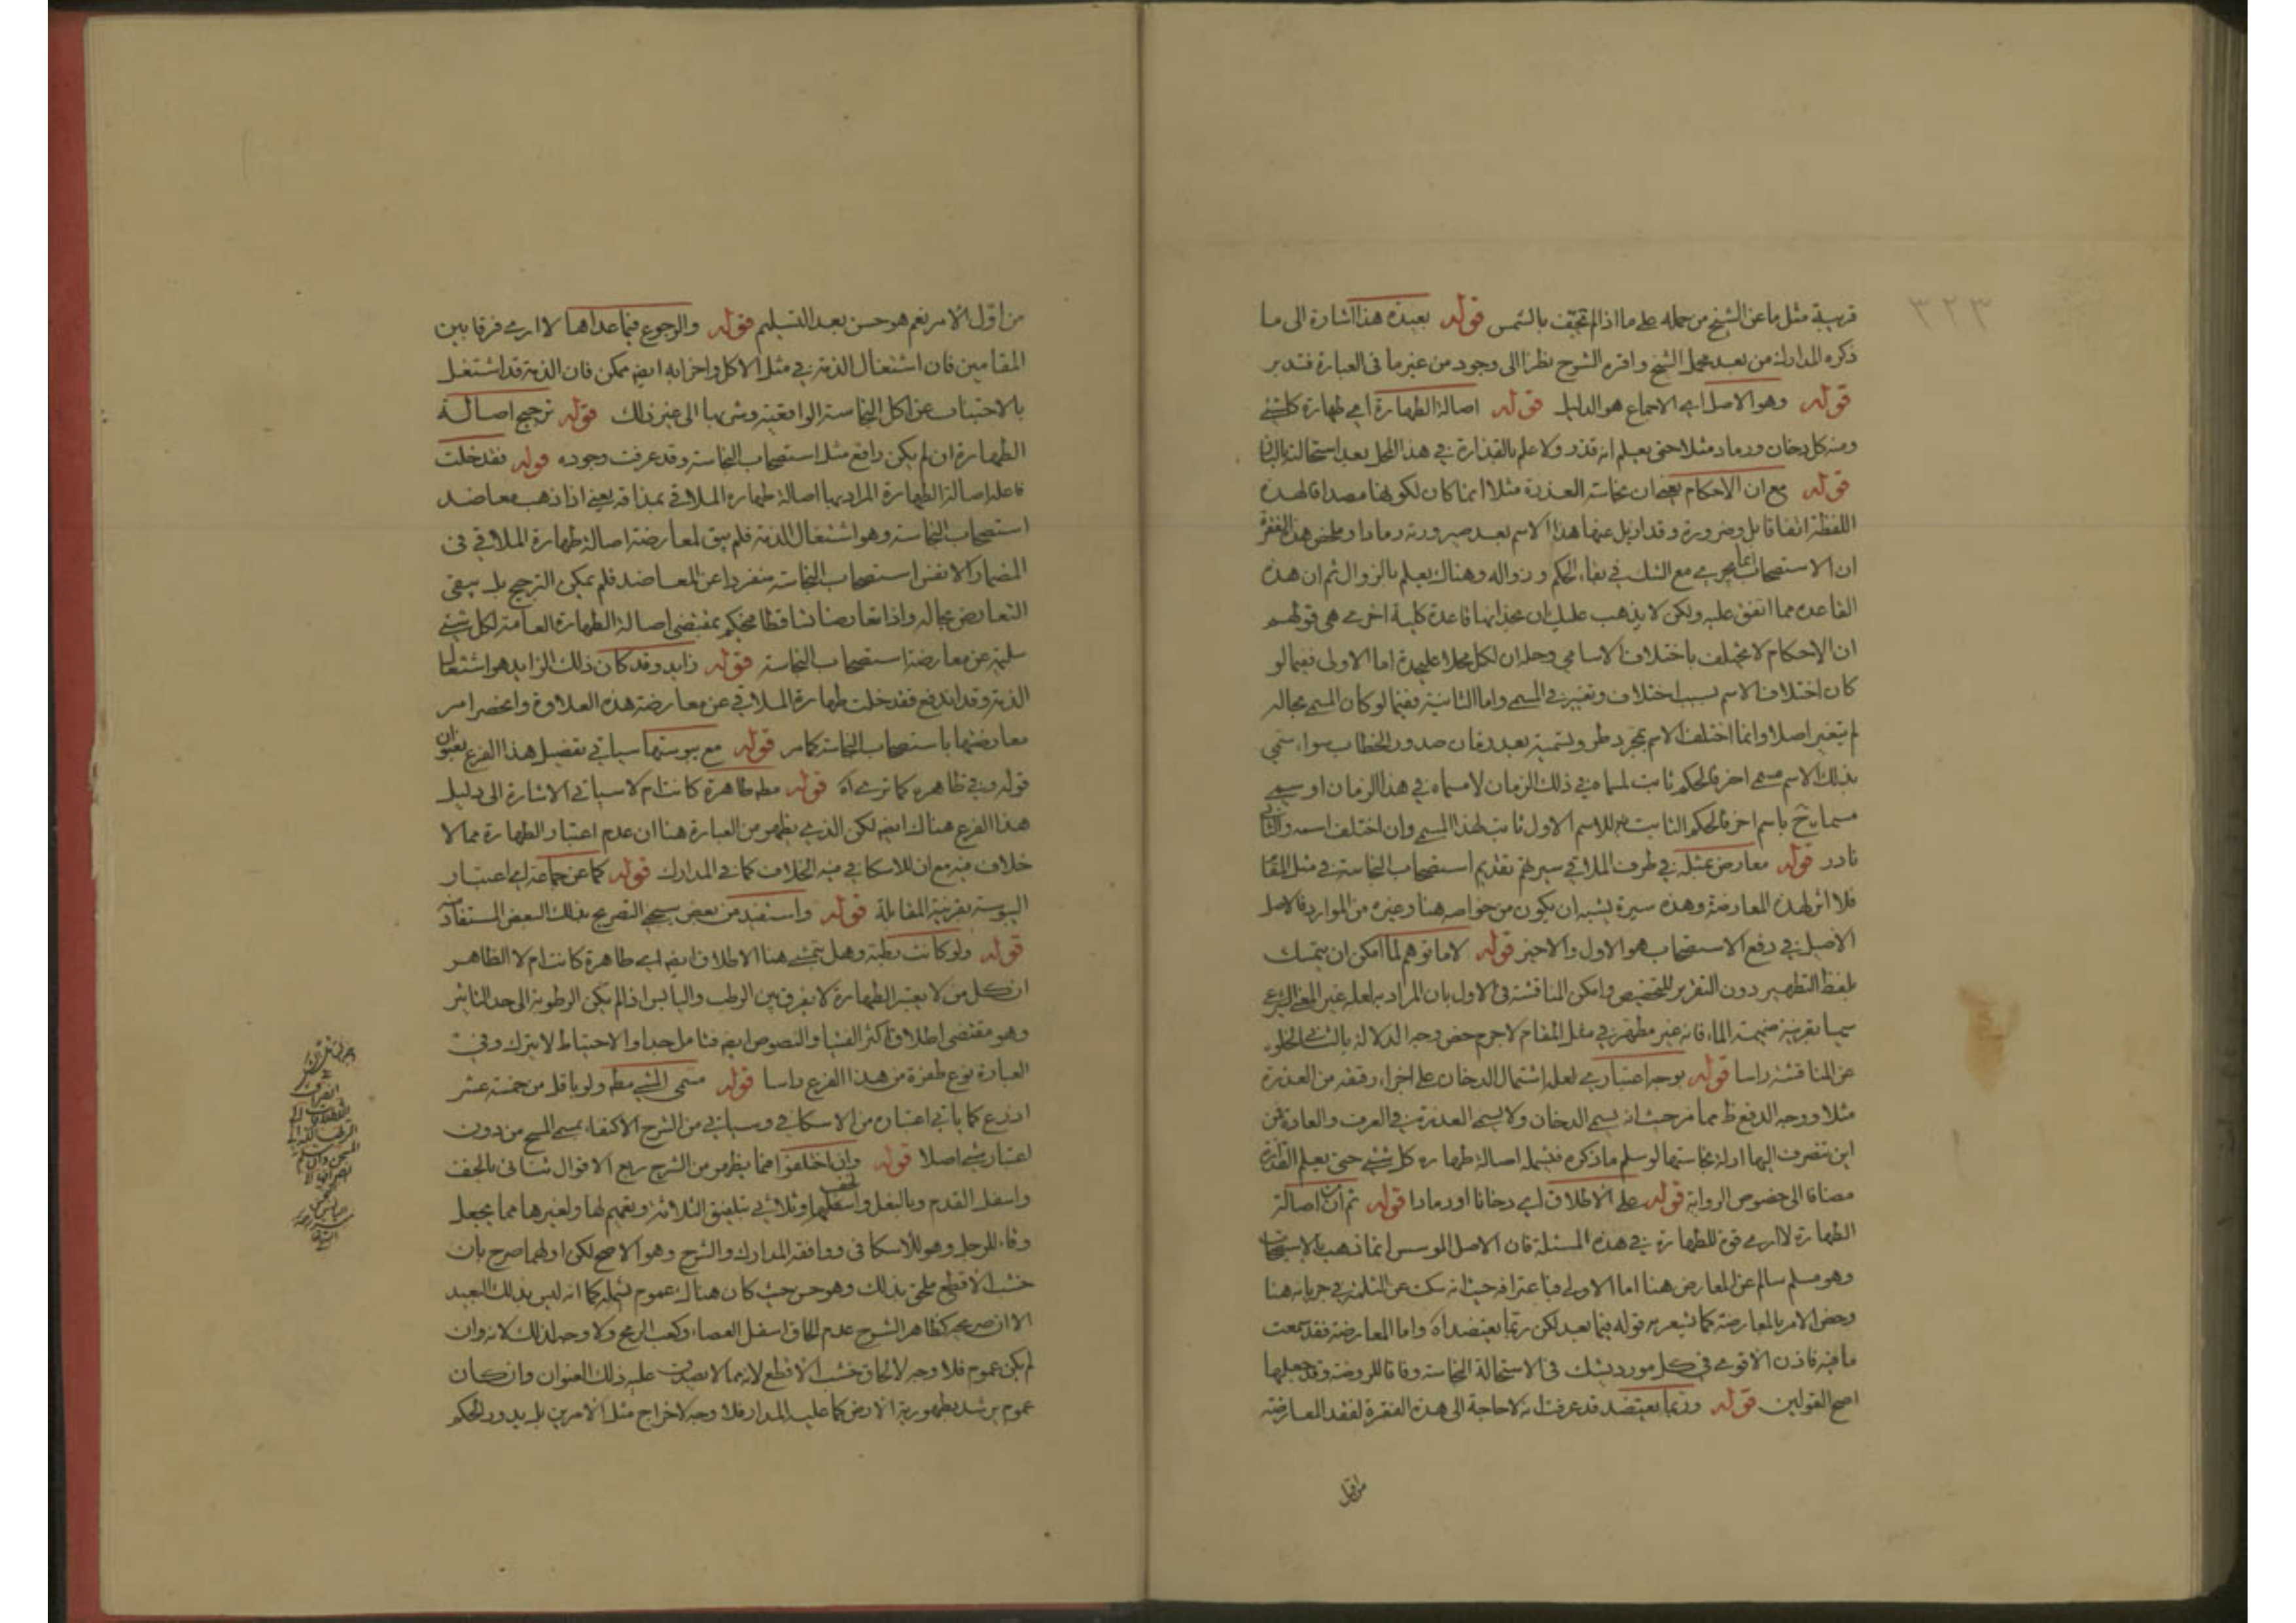 ٣٢٣
قريبة مثل ما عن الشيخ من حمله على ما اذا لم تجفف بالشمس قوله بعيدة هذا اشارة الى ما
ذكره المدارك من بعد محمل الشيخ واقره الشرح نظرا الى وجود من غير ما فى العبارة فتدبر
قوله وهو الاصل اى الاجماع هو الدليل قوله اصالة الطهارة اى طهارة كل شئ
ومنه كل دخان ورماد مثلا حتى يعلم انه قذر ولا علم بالقذارة فى هذا المحل بعد استحالته
قوله مع ان الاحكام يعنى ان نجاسة العذرة مثلا انما كان لكونها مصداقا لهذه
اللفظة اتفاقا بل وضرورة وقد ازيل عنها هذا الاسم بعد صيرورته رمادا وملخص هذه الفقرة
ان الاستصحاب انما يجرى مع الشك فى بقاء الحكم وزواله وهناك يعلم بالزوال ثم ان هذه
القاعدة مما اتفق عليه ولكن لا يذهب عليك ان بحذائها قاعدة كلية اخرى هى قولهم
ان الاحكام لا تختلف باختلاف الاسامى وحله ان لكل محلا عليحدة اما الاولى ففيما لو
كان اختلاف الاسم بسبب اختلاف وتغير فى المسمى واما الثانية ففيما لو كان المسمى بحاله
لم يتغير اصلا وانما اختلف الاسم بمجرد طرو تسمية بعد زمان صدور الخطاب سواء سمى
بذلك الاسم مسمى اخر فالحكم ثابت لمسماه فى ذلك الزمان لا مسماه فى هذا الزمان او سمى
مسماه ح باسم اخر فالحكم الثابت للاسم الاول ثابت لهذا المسمى وان اختلف اسمه والثانى
نادر قوله معارض بمثله فى طرف الملاقى سيرتهم تقديم استصحاب النجاسة فى مثل المقام
فلا اثر لهذه المعارضة وهذه سيرة يشبه ان يكون من خواصه هنا وغيره من الموارد فالاصل
الاصيل فى دفع الاستصحاب هو الاول والاخير قوله لا ما توهم لما امكن ان يتمسك
بلفظ التطهير دون التقرير للتخصيص وامكن المناقشة فى الاول بان المراد به لعله غير المعنى الشرعى
سيما بقرينة ضميمة الماء فانه غير مطهر فى مثل المقام لا جرم خص وجه الدلالة بالثانى لخلوه
عن المناقشة راسا قوله بوجه اعتبارى لعله اشتمال الدخان على اجزاء رقيقة من العذرة
مثلا ووجه الدفع ظ مما مر حيث انه يسمى الدخان ولا يسمى العذرة فى العرف والعادة فمن
اين تنصرف اليها ادلة نجاستها لو سلم ما ذكره فتشمله اصالة طهارة كل شئ حتى يعلم القذارة
مضافا الى خصوص الرواية قوله على الاطلاق اى دخانا او رمادا قوله ثم ان اصالة
الطهارة لا ارى قوة للطهارة فى هذه المسئلة فان الاصل الموسس انما ذهب بالاستصحاب
وهو مسلم سالم عن المعارض هنا اما الاولى فباعترافه حيث انه سكت عن الثلمة فى جريانه هنا
وخص الامر بالمعارضة كما يشعر به قوله فيما بعد لكن ربما يعتضد اه واما المعارضة فقد سمعت
ما فيه فاذن الاقوى فى كل مورد يشك فى الاستحالة النجاسة وفاقا للروضة وقد جعلها
اصح القولين قوله وربما يعتضد قد عرفت انه لا حاجة الى هذه الفقرة لفقد المعارضة
من اول
من اول الامر نعم هو حسن بعد التسليم قوله والرجوع فيما عداها لا ارى فرقا بين
المقامين فان اشتغال الذمة فى مثل الاكل واضرابه ايضا ممكن فان الذمة قد اشتغل
بالاجتناب عن اكل النجاسة الواقعية وشربها الى غير ذلك قوله ترجيح اصالة
الطهارة ان لم يكن رافع مثل استصحاب النجاسة وقد عرفت وجوده قوله فقد خلت
فاعله اصالة الطهارة المراد بها اصالة طهارة الملاقى بمذاقه يعنى اذا ذهب معاضد
استصحاب النجاسة وهو اشتغال الذمة فلم يبق لمعارضة اصالة طهارة الملاقى فى
المضمار الا نفس استصحاب النجاسة منفردا عن المعاضد فلم يمكن الترجيح بل يبقى
التعارض بحاله واذا تعارضا تساقطا فيحكم بمقتضى اصالة الطهارة العامة لكل شئ
سليمة عن معارضة استصحاب النجاسة قوله زايد وقد كان ذلك الزايد هو اشتغال
الذمة وقد اندفع فقد خلت طهارة الملاقى عن معارضة هذه العلاوة وانحصر امر
معارضتها باستصحاب النجاسة كما مر قوله مع يبوستها سياتى تفصيل هذا الفرع بعنوان
قوله وفى ظاهره كما ترى اه قوله مطه طاهرة كانت ام لا سياتى الاشارة الى دليل
هذا الفرع هناك ايضا لكن الذى يظهر من العبارة هنا ان عدم اعتبار الطهارة مما لا
خلاف فيه مع ان للاسكافى فيه الخلاف كما فى المدارك قوله كما عن جماعة اى اعتبار
اليبوسة بقرينة المقابلة قوله واستفيد من بعض سيجئ التصريح بذلك البعض المستفاد منه
قوله ولو كانت رطبة وهل يتمشى هنا الاطلاق ايضا اى طاهرة كانت ام لا الظاهر
ان كل من لا يعتبر الطهارة لا يفرق بين الرطب واليابس اذا لم يكن الرطوبة الى حد التاثير
وهو مقتضى اطلاق اكثر الفتيا والنصوص ايضا فتامل جدا والاحتياط لا يترك وفى
العبارة نوع طفرة من هذا الفرع راسا قوله مسمى المشى مطه ولو باقل من خمسة عشر
اذرع كما ياتى اعتباره من الاسكافى وسياتى من الشرح الاكتفاء بمسمى المسح من دون
اعتبار شئ اصلا قوله وان اختلفوا فيما يظهر من الشرح ربع الاقوال ثنائى بالخف
واسفل القدم وبالنعل واسفلهما وثلاثى بتلفيق الثلاثة وتعميم لها ولغيرها مما يجعل
وقاء للرجل وهو للاسكافى ووافقه المدارك والشرح وهو الاصح لكن اولهما صرح بان
خشب الاقطع ملحق بذلك وهو حسن حيث كان هناك عموم تشمله كما انه ليس بذلك البعيد
الا ان صريحه كظاهر الشرح عدم الحاق اسفل العصاء وكعب الرمح ولا وجه لذلك لانه وان
لم يكن عموم فلا وجه لالحاق خشب الاقطع لانه مما لا يصدق عليه ذلك العنوان وان كان
عموم يرشد بطهورية الارض كما عليه المدار فلا وجه لاخراج مثل الامرين بل يدور الحكم